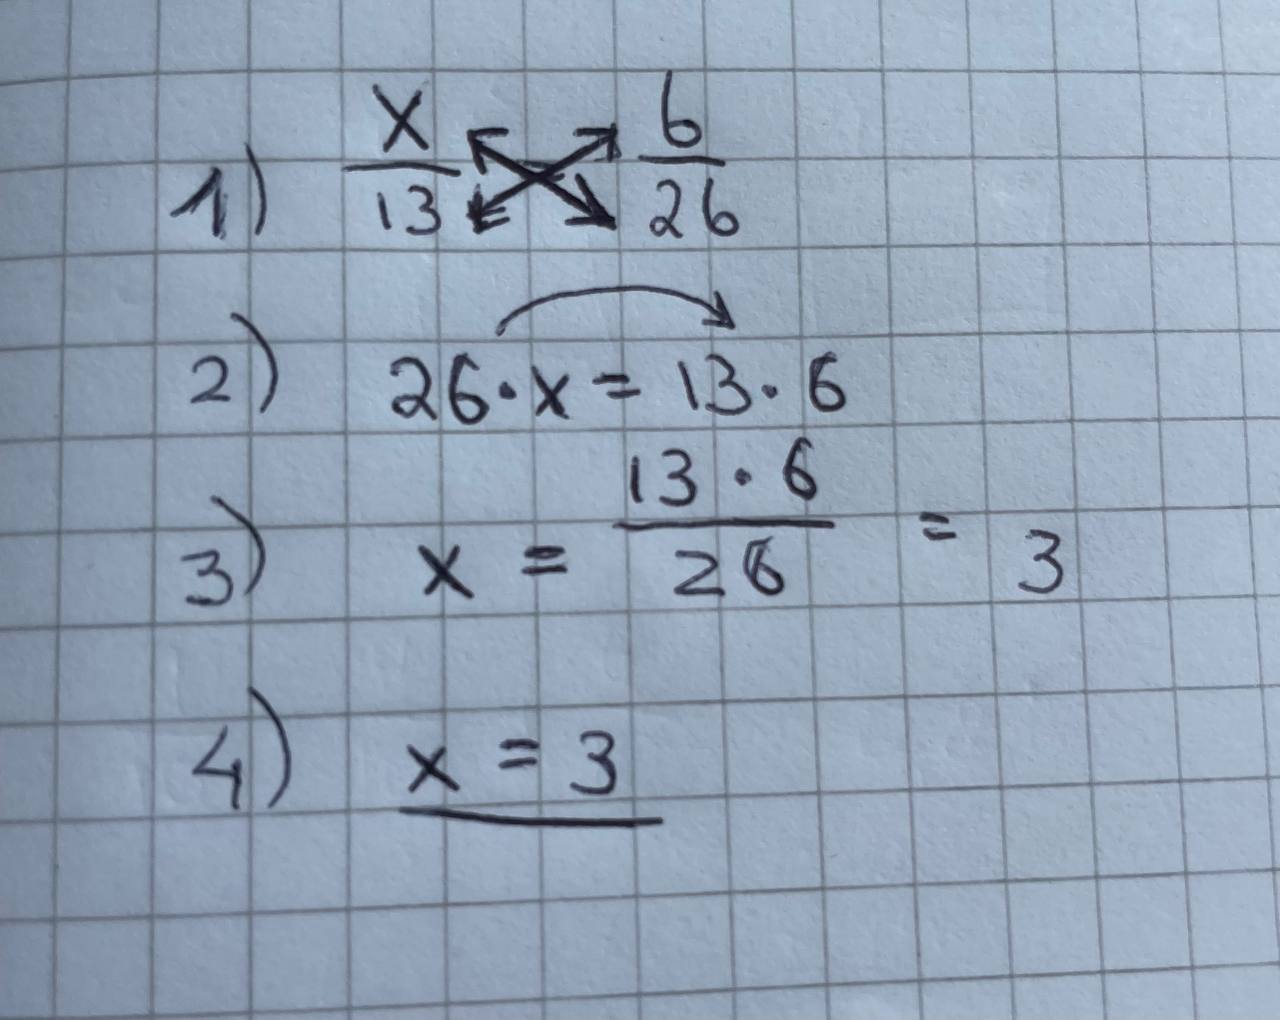 1) x/13 6/26
2) 26·x = 13·6
3) x = 13·6/26 = 3
4) x = 3